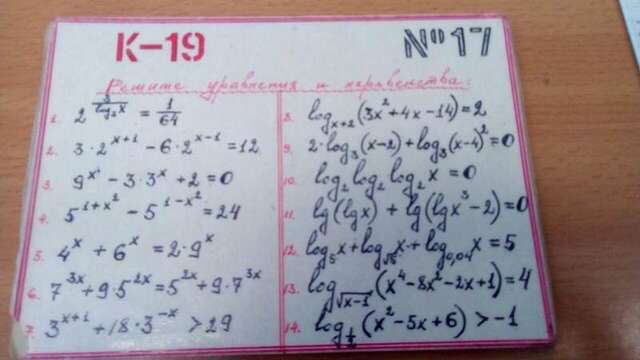 К-19
№17
Решите уравнения и неравенства:
1. 2^{3/log₂x} = 1/64
2. 3·2^{x+1} - 6·2^{x-1} = 12
3. 9^x - 3·3^x + 2 = 0
4. 5^{1+x²} - 5^{1-x²} = 24
5. 4^x + 6^x = 2·9^x
6. 7^{3x} + 9·5^{2x} = 5^{2x} + 9·7^{3x}
7. 3^{x+1} + 18·3^{-x} > 29
8. log_{x+2}(3x² + 4x - 14) = 2
9. 2·log₃(x-2) + log₃(x-4)² = 0
10. log₂ log₂ log₂ x = 0
11. lg(lgx) + lg(lgx³ - 2) = 0
12. log₅x + log_{√5}x + log_{0,04}x = 5
13. log_{√(x-1)}(x⁴ - 8x² - 2x + 1) = 4
14. (x² - 5x + 6) > -1